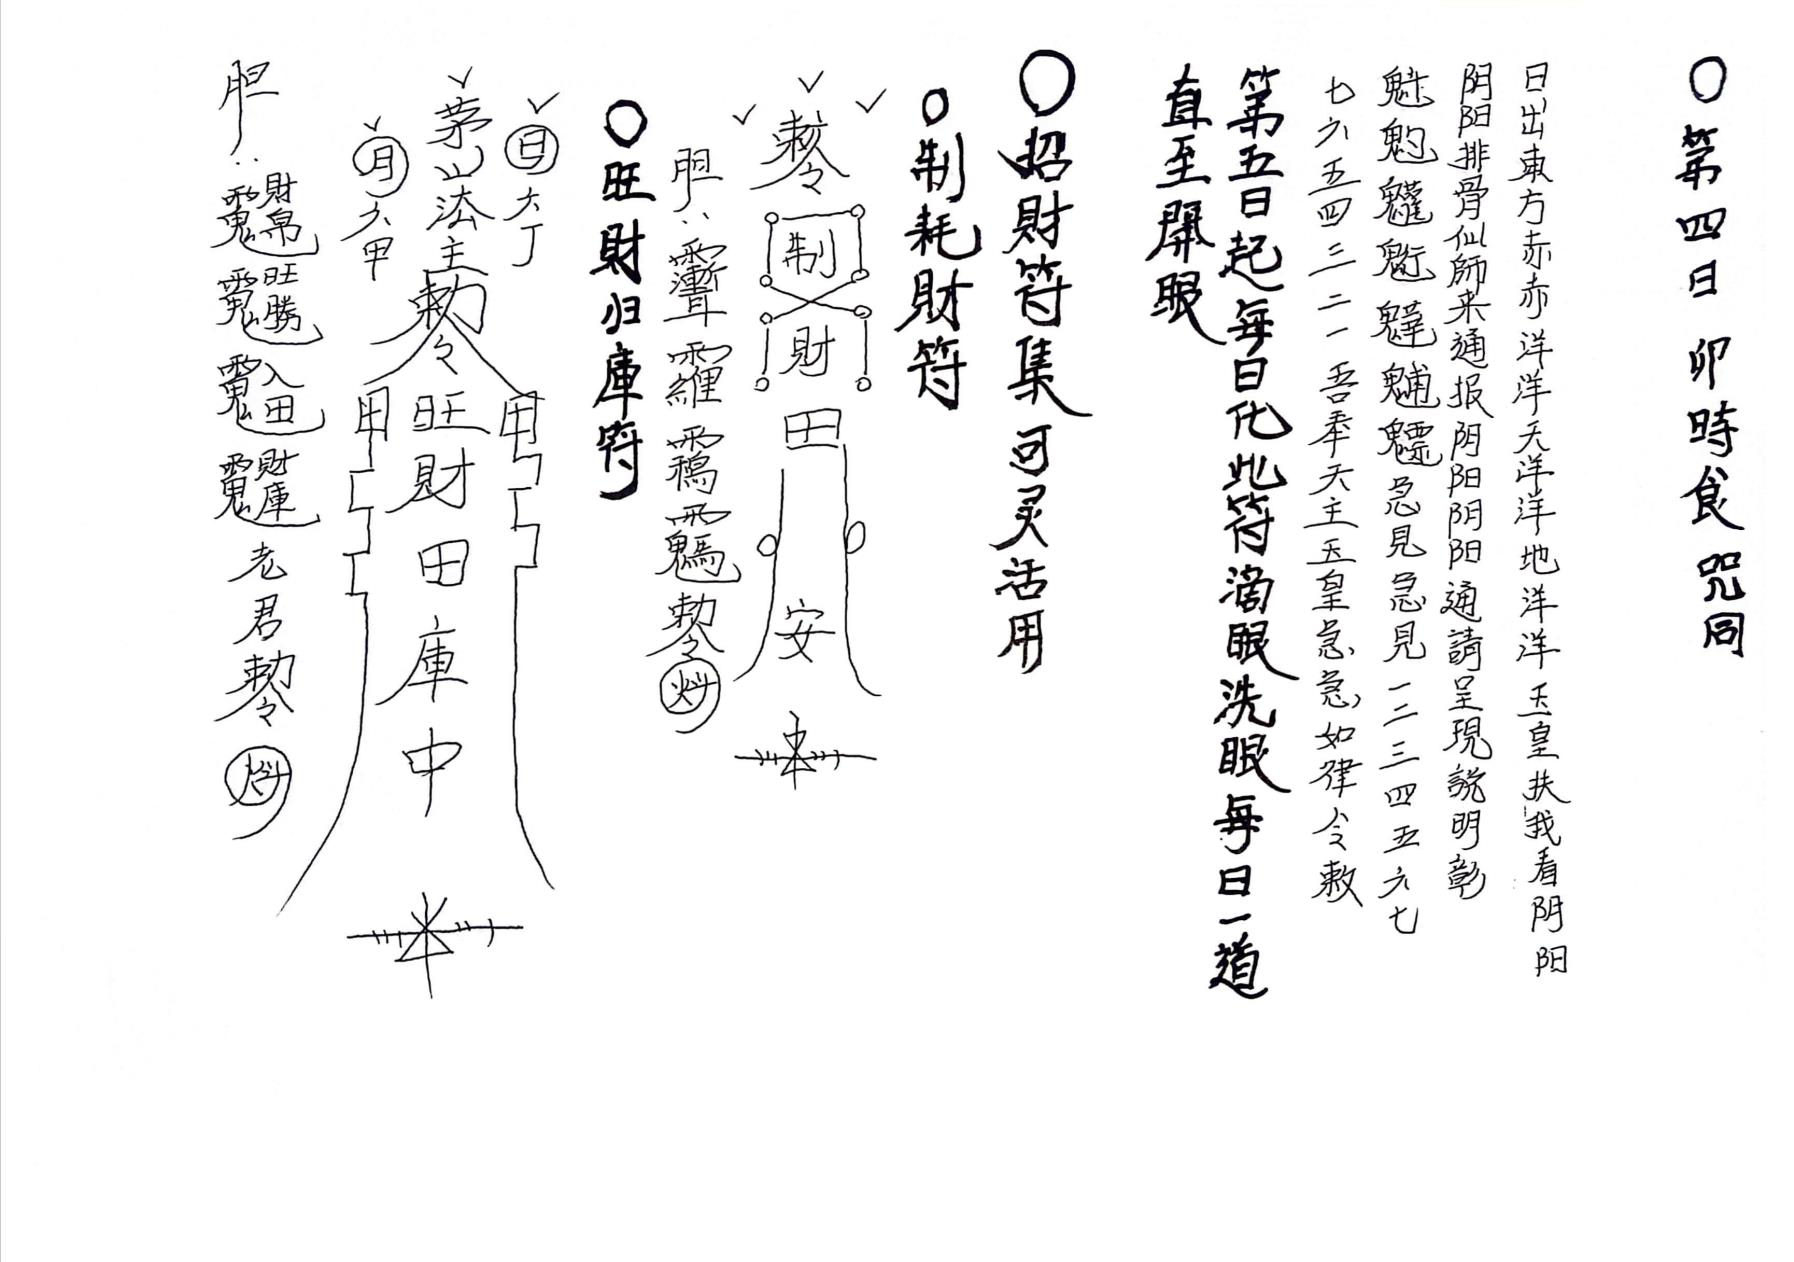 ○第四日卯時食咒同
日出東方赤赤洋洋天洋洋地洋洋玉皇扶我看阴阳
阴阳排骨仙師来通报阴阳阴阳通請呈現説明彰
急見急見一二三四五六七
七六五四三二一吾奉天主玉皇急急如律令敕
第五日起每日化此符滴眼洗眼每日一道
直至開眼
○招財符集可灵活用
○制耗財符
敕令
制
財
田
安
胆:
敕令
○旺財归庫符
日六丁
茅山法主敕令旺財田庫中
月六甲
甲
甲
胆:
財帛旺勝入田財庫老君敕令